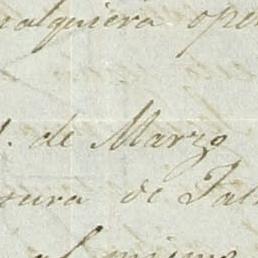 ualquiera ope
. de Marzo
sura de Fa
al mismo